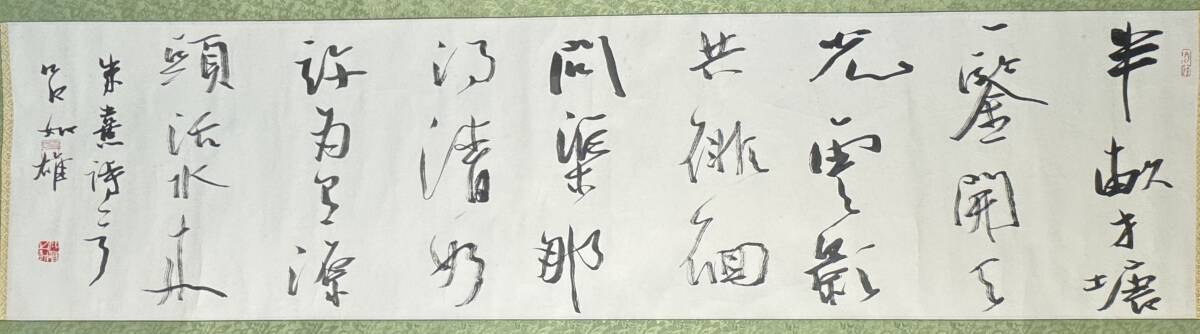 半畝方塘
一鑒開天
光雲影
共徘徊
問渠那
得清如
許為有源
頭活水來
朱熹詩
吕如雄